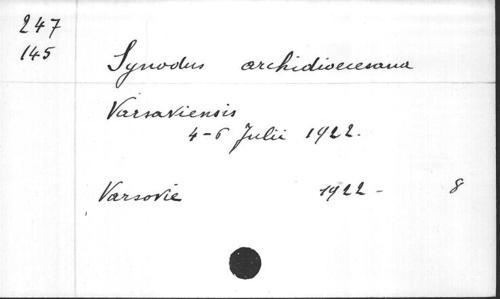 247
145
Synodus archidioecesana
Varsaviensis
4-6 Julii 1922.
Varsovie 1922 - 8